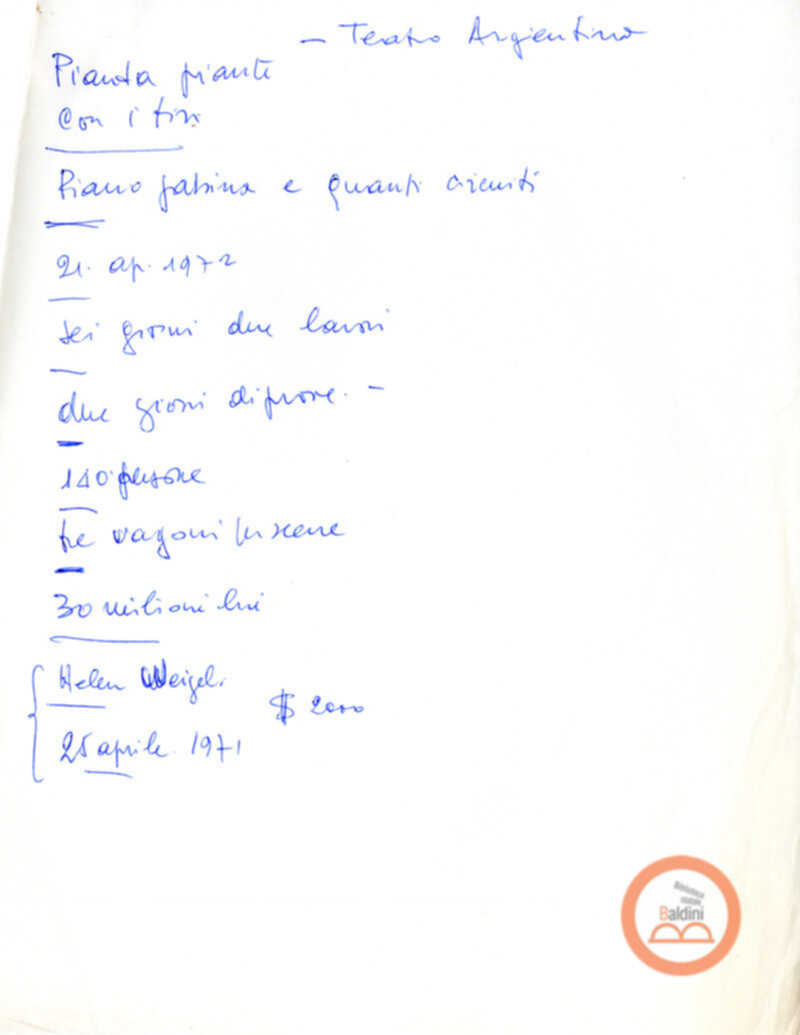 – Teatro Argentina
Pianta piante
con i tiri
Piano cabina e quanti circuiti
21. ap. 1972
sei giorni due lavori
due gioni di prove. –
140 persone
tre vagoni per scene
30 milioni lire
Helen Weigel.
$ 2000
25 aprile. 1971
Biblioteca
statale
Baldini